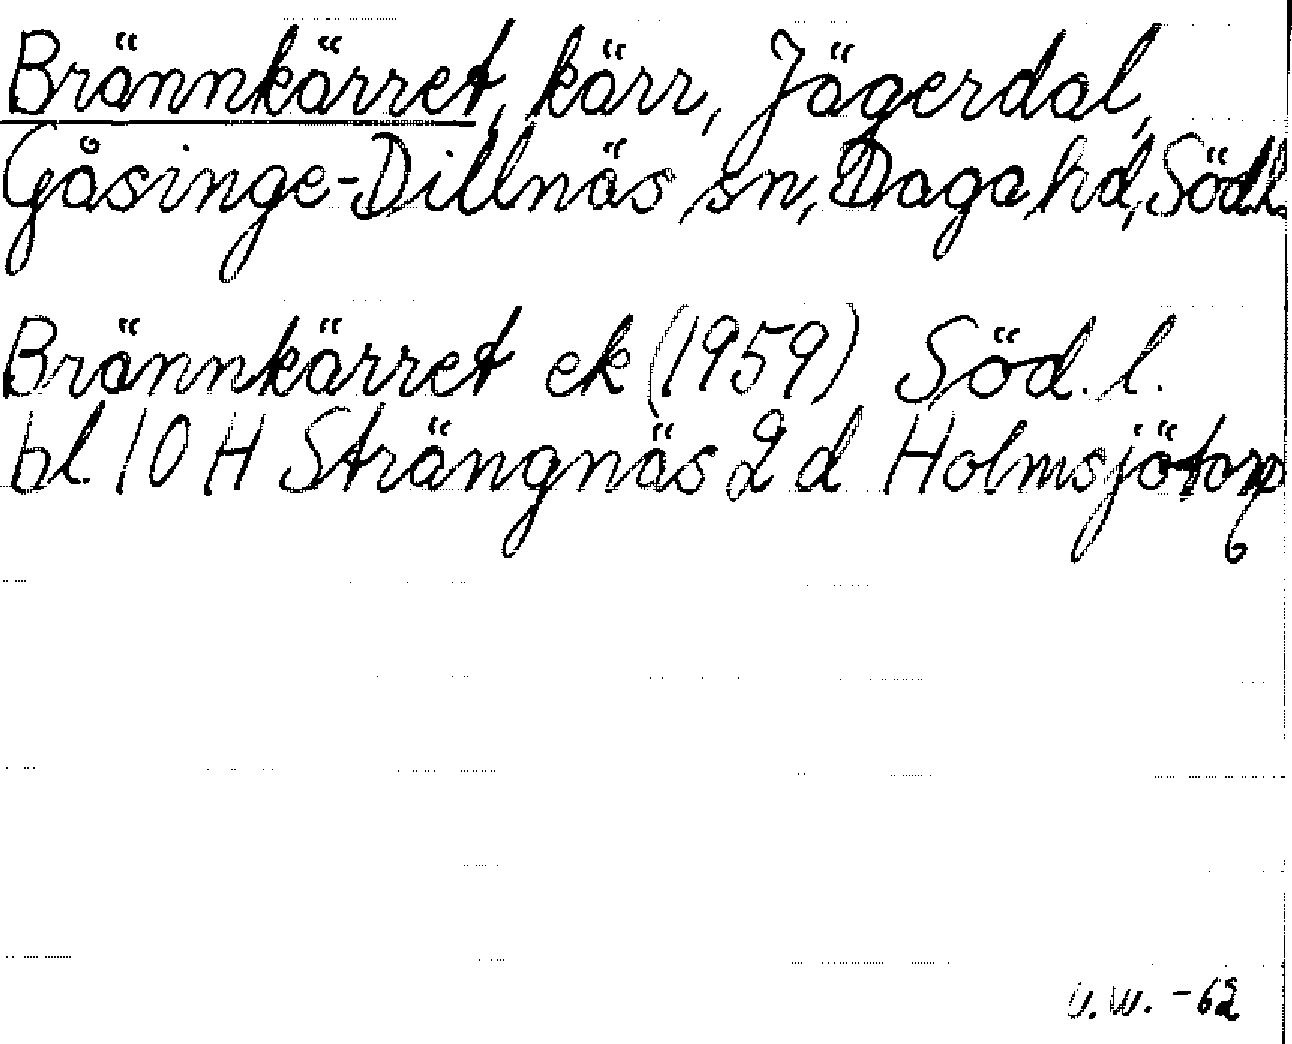 Brännkärret, kärr, Jägerdal,
Gåsinge-Dillnäs sn, Daga hd, Södl.
Brännkärret ek (1959) Söd. l.
bl. 10 H Strängnäs 2 d Holmsjötorp
U.W. -62